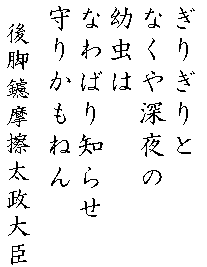 ぎりぎりと
なくや深夜の
幼虫は
なわばり知らせ
守りかもねん
後脚鑢摩擦太政大臣